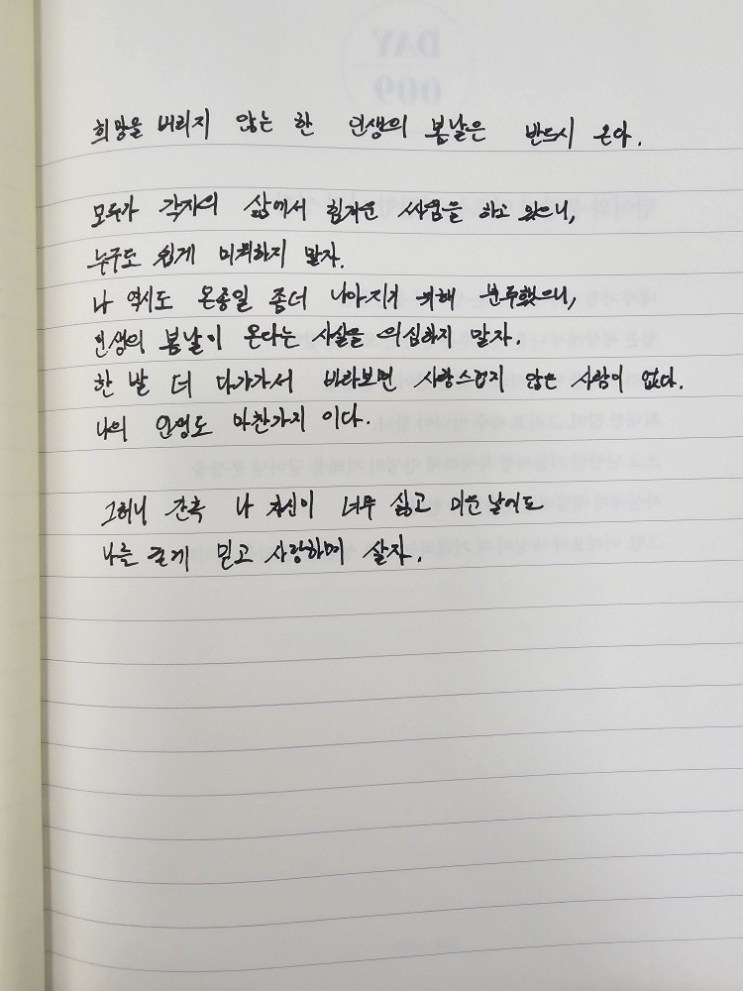 희망을 버리지 않는 한 인생의 봄날은 반드시 온다.
모두가 각자의 삶에서 힘겨운 싸움을 하고 있으니,
누구도 쉽게 미워하지 말자.
나 역시도 온종일 좀더 나아지기 위해 분투했으니,
인생의 봄날이 온다는 사실을 의심하지 말자.
한 발 더 다가가서 바라보면 사랑스럽지 않은 사람이 없다.
나의 인생도 마찬가지 이다.
그러니 간혹 나 자신이 너무 싫고 미운 날에도
나를 믿고 사랑하며 살자.